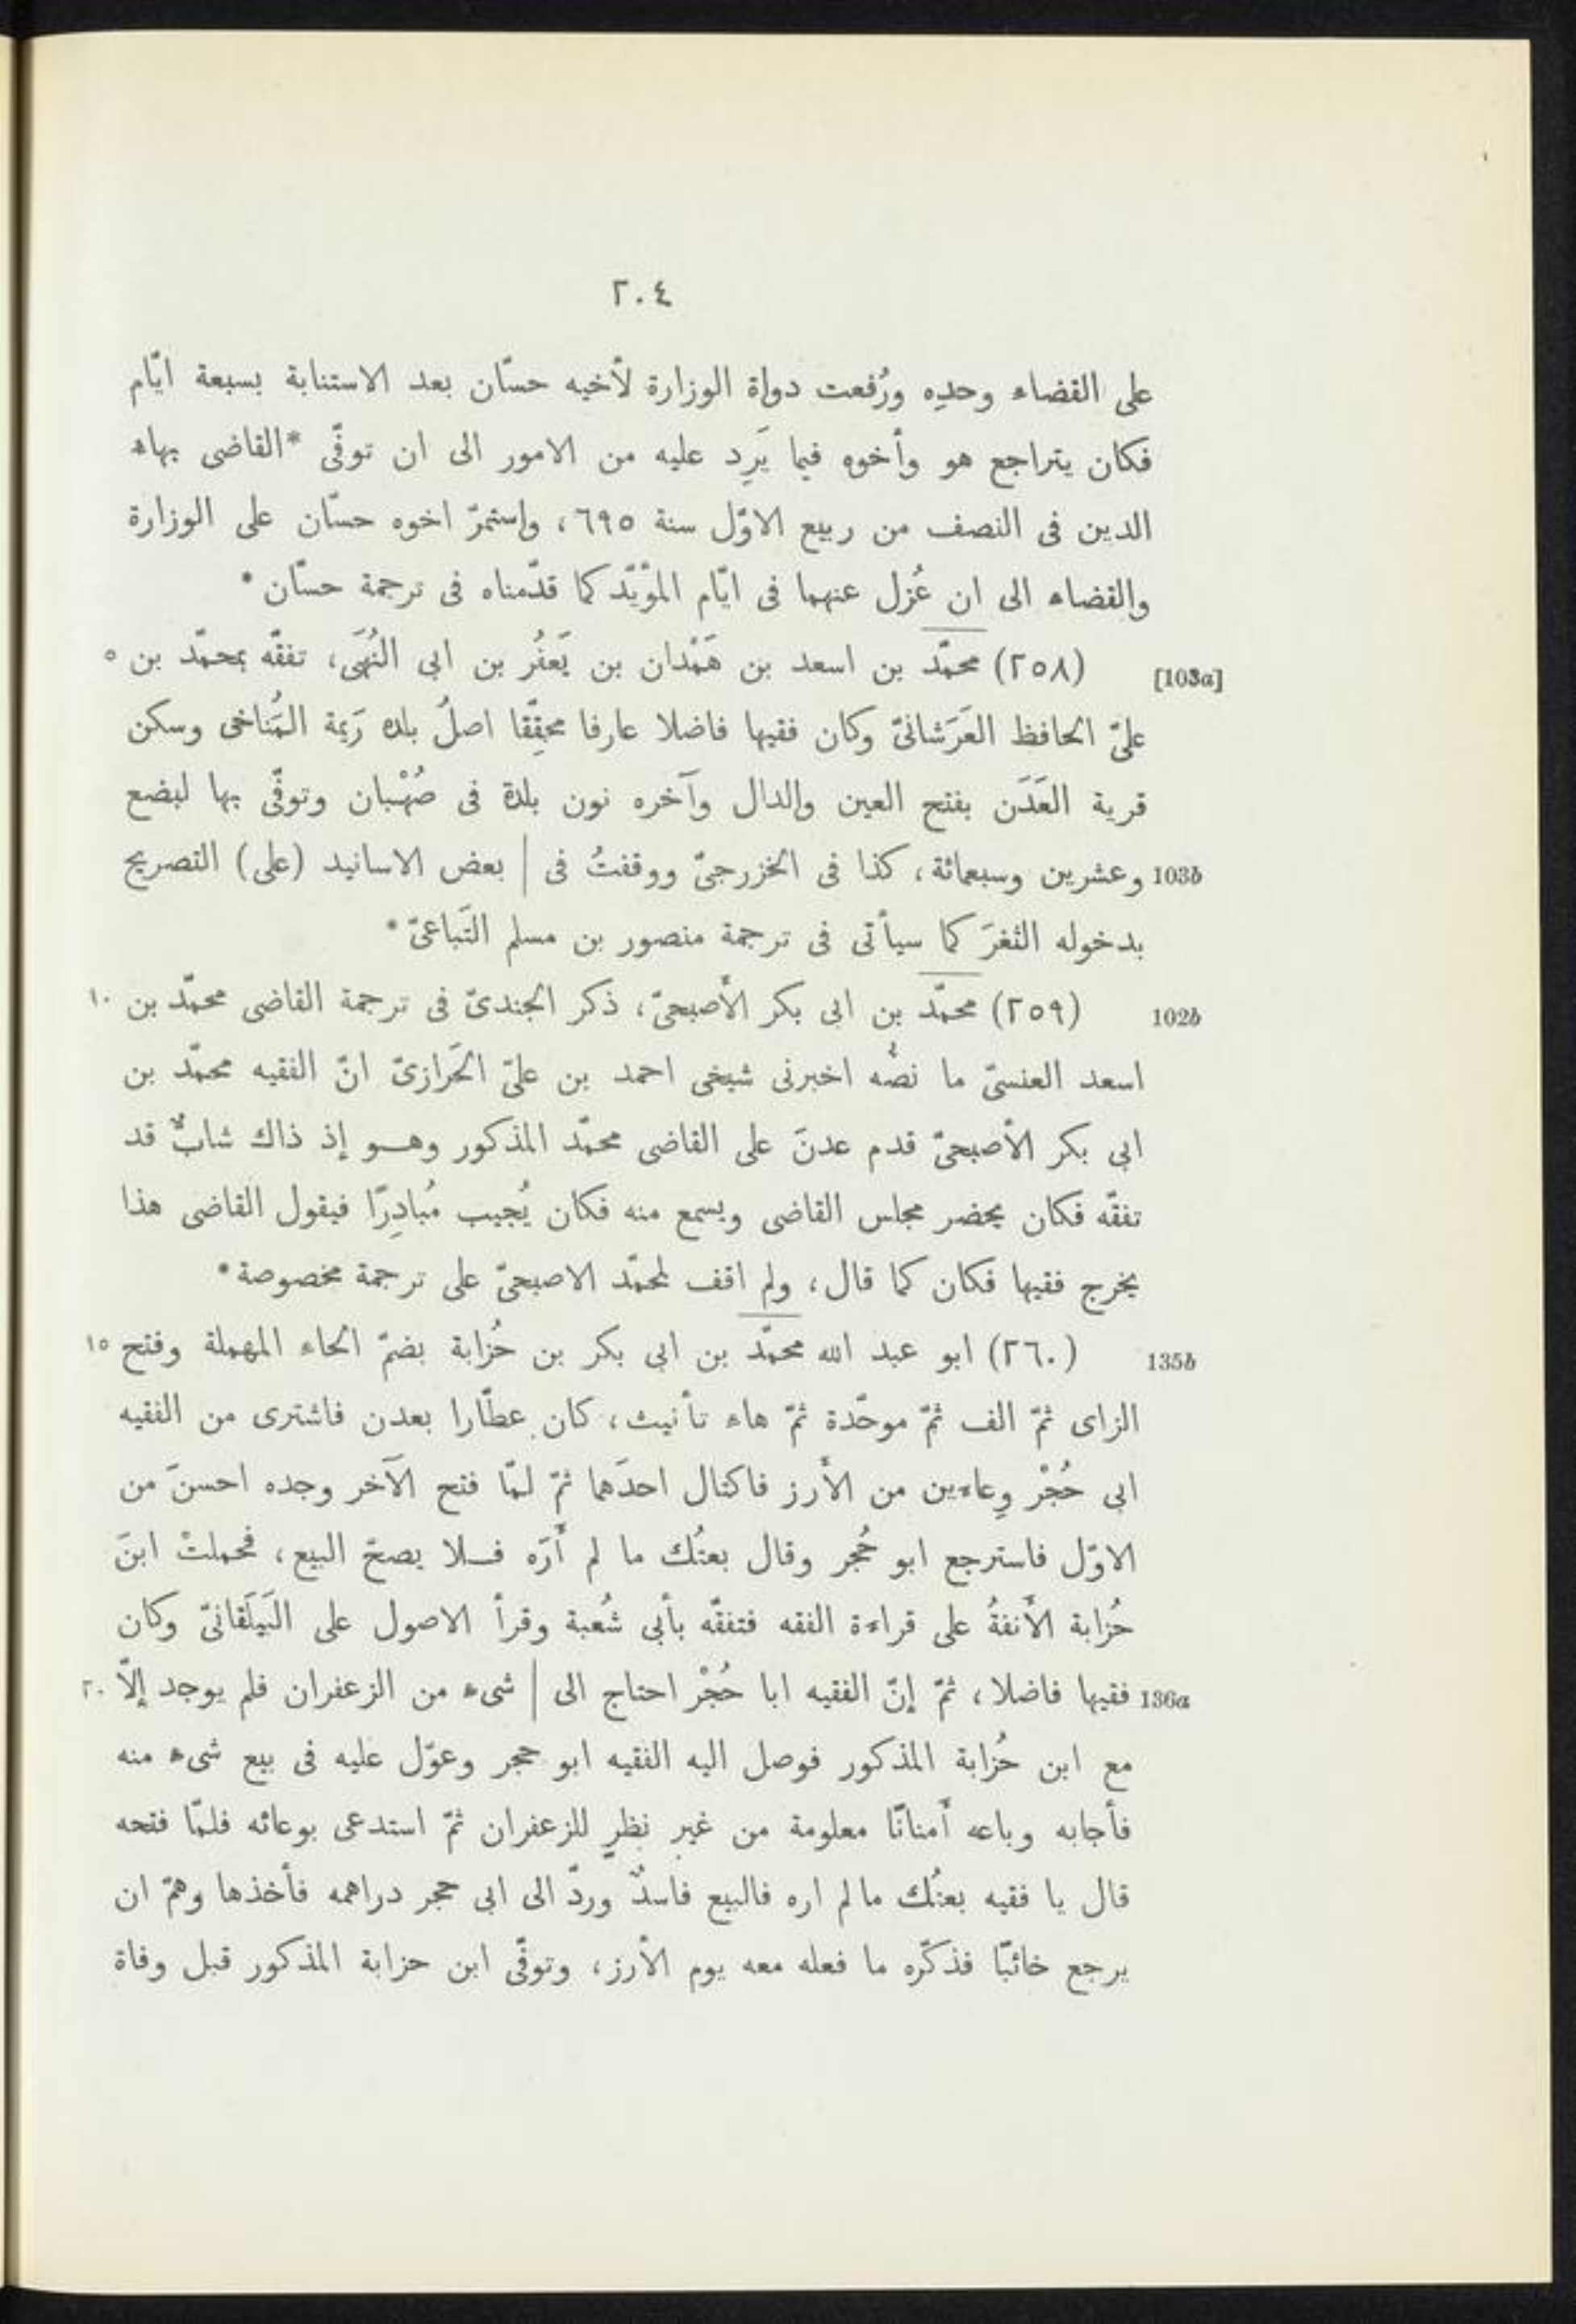 ٢٠٤
على القضاء وحدِه ورُفعت دواة الوزارة لأخيه حسّان بعد الاستنابة بسبعة ايّام
فكان يتراجع هو وأخوه فيما يَرِد عليه من الامور الى ان توفّى *القاضى بهاء
الدين فى النصف من ربيع الاوّل سنة ٦٩٥، واستمرّ اخوه حسّان على الوزارة
والقضاء الى ان عُزل عنهما فى ايّام المؤيّد كما قدّمناه فى ترجمة حسّان*
[103a] (٢٥٨) محمّد بن اسعد بن هَمْدان بن يَعفُر بن ابى النُهَى، تفقّه بمحمّد بن ٥
علىّ الحافظ العَرَشانىّ وكان فقيها فاضلا عارفا محقِّقا اصلُ بلده رَيمة المُناخى وسكن
قرية العَدَن بفتح العين والدال وآخره نون بلدة فى صُهْبان وتوفّى بها لبضع
103b وعشرين وسبعمائة، كذا فى الخزرجىّ ووقفتُ فى | بعض الاسانيد (على) التصريح
بدخوله الثغرَ كما سيأتى فى ترجمة منصور بن مسلم التَباعىّ*
102b (٢٥٩) محمّد بن ابى بكر الأصبحىّ، ذكر الجندىّ فى ترجمة القاضى محمّد بن ١٠
اسعد العنسىّ ما نصُّه اخبرنى شيخى احمد بن علىّ الحَرازىّ انّ الفقيه محمّد بن
ابى بكر الأصبحىّ قدم عدنَ على القاضى محمّد المذكور وهو إذ ذاك شابٌّ قد
تفقّه فكان يحضر مجلس القاضى ويسمع منه فكان يُجيب مُبادِرًا فيقول القاضى هذا
يخرج فقيها فكان كما قال، ولم اقف لمحمّد الاصبحىّ على ترجمة مخصوصة*
135b (٢٦٠) ابو عبد الله محمّد بن ابى بكر بن حُزابة بضمّ الحاء المهملة وفتح ١٥
الزاى ثمّ الف ثمّ موحّدة ثمّ هاء تأنيث، كان عطّارا بعدن فاشترى من الفقيه
ابى حُجْر وِعاءين من الأرز فاكتال احدَهما ثمّ لمّا فتح الآخر وجده احسنَ من
الاوّل فاسترجع ابو حُجر وقال بعتُك ما لم أَرَه فلا يصحّ البيع، فحملتْ ابنَ
حُزابة الأَنفةُ على قراءة الفقه فتفقّه بأبى شُعبة وقرأ الاصول على البَيلَقانىّ وكان
136a فقيها فاضلا، ثمّ إنّ الفقيه ابا حُجْر احتاج الى | شىء من الزعفران فلم يوجد إلّا ٢٠
مع ابن حُزابة المذكور فوصل اليه الفقيه ابو حجر وعوّل عليه فى بيع شىء منه
فأجابه وباعه أَمنانًا معلومة من غير نظرٍ للزعفران ثمّ استدعى بوعائه فلمّا فتحه
قال يا فقيه بعتُك ما لم اره فالبيع فاسدٌ وردّ الى ابى حجر دراهمه فأخذها وهمّ ان
يرجع خائبًا فذكّره ما فعله معه يوم الأرز، وتوفّى ابن حزابة المذكور قبل وفاة